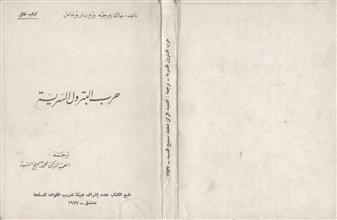 كتاب نقل
تأليف: جاك بيرجيه وبرنار توماس
حرب البترول السرية
ترجمة:
العميد الركن محمد سميح السيد
طبع الكتاب تحت إشراف هيئة تدريب القوات المسلحة
دمشق - ١٩٧٧
حرب البترول السرية - ترجمة: العميد الركن محمد سميح السيد - ١٩٧٧